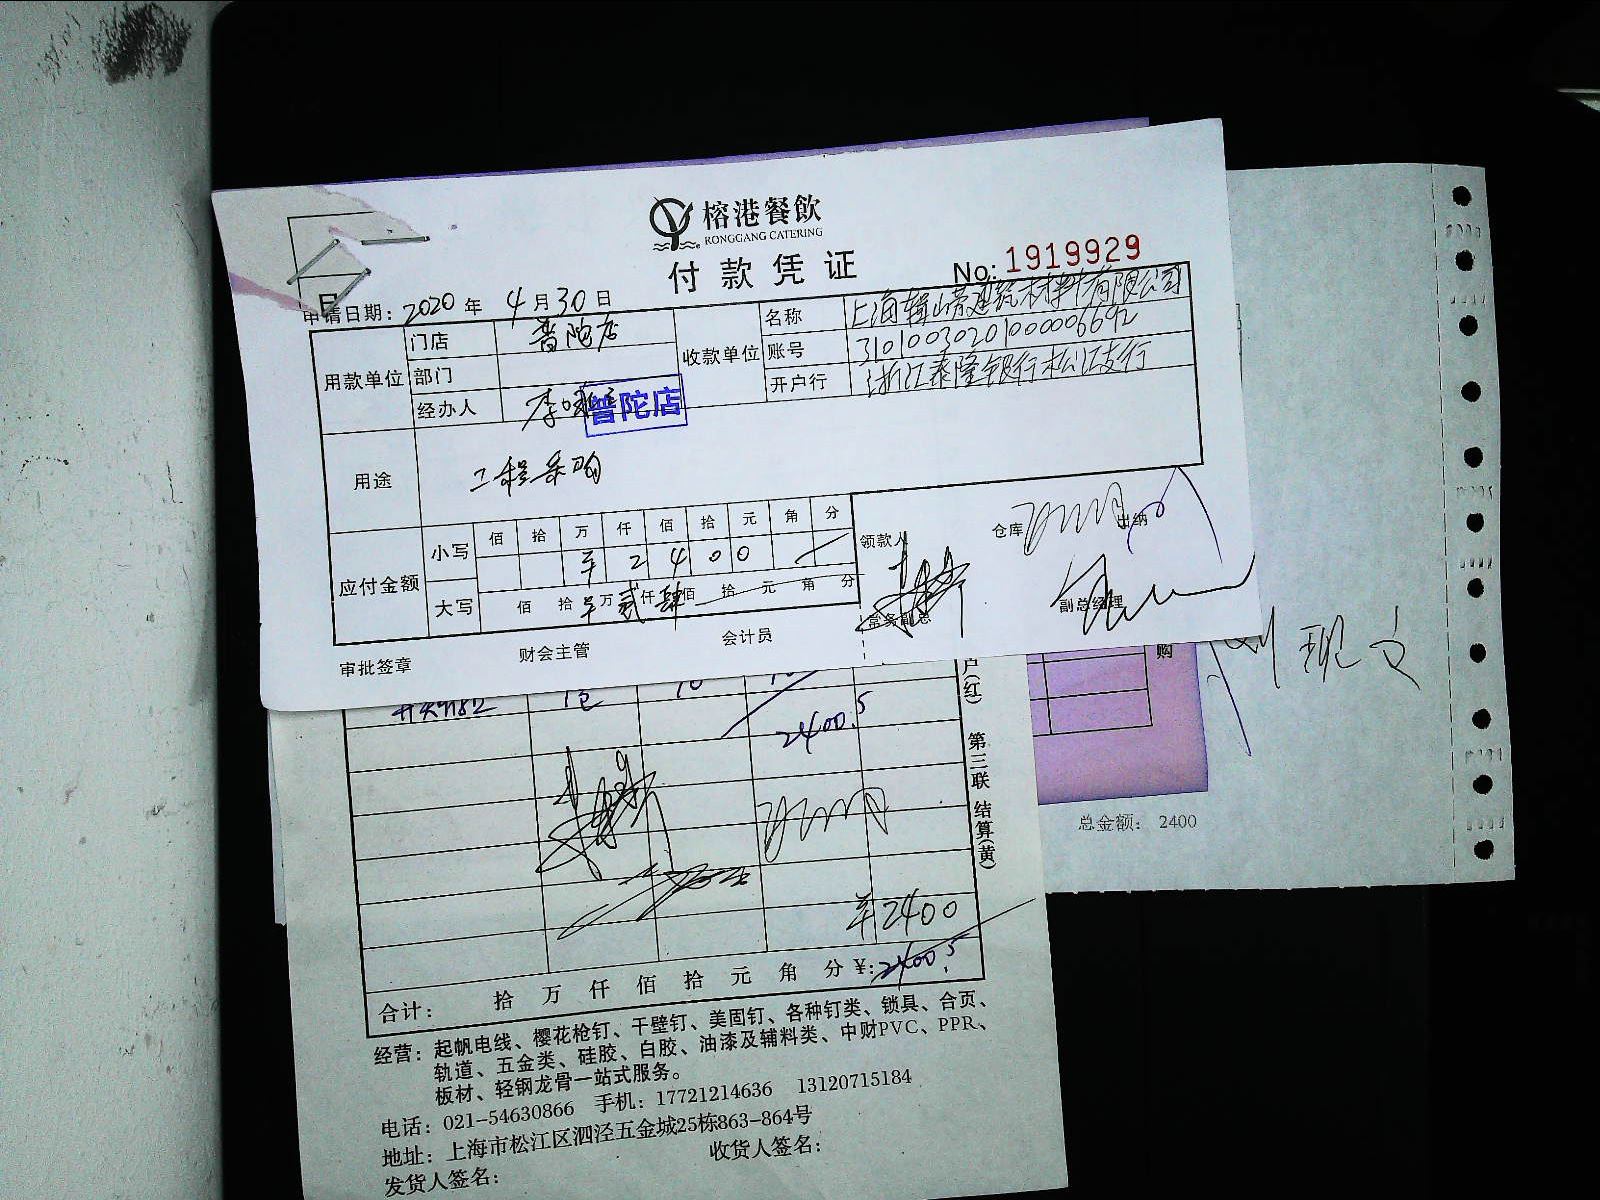 榕港餐飲
RONGGANG CATERING
付款凭证
No: 1919929
申请日期: 2020 年 4 月 30 日
用款单位 门店 普陀店
部门
经办人 李
普陀店
收款单位 名称 上海 建筑材料有限公司
账号 3101003020100006692
开户行 浙江泰隆银行松江支行
用途 工程采购
应付金额 小写 佰 拾 万 仟 佰 拾 元 角 分
¥ 2 4 0 0
大写 佰 拾 万 贰 仟 肆 佰 拾 元 角 分
领款人
仓库
出纳
常务副总
副总经理
审批签章
财会主管
会计员
1包 10
2400.5
¥2400
合计: 拾 万 仟 佰 拾 元 角 分 ¥: 2400.5
户(红) 第三联 结算(黄)
经营: 起帆电线、樱花枪钉、干壁钉、美固钉、各种钉类、锁具、合页、
轨道、五金类、硅胶、白胶、油漆及辅料类、中财PVC、PPR、
板材、轻钢龙骨一站式服务。
电话: 021-54630866 手机: 17721214636 13120715184
地址: 上海市松江区泗泾五金城25栋863-864号
发货人签名:
收货人签名:
购
总金额: 2400